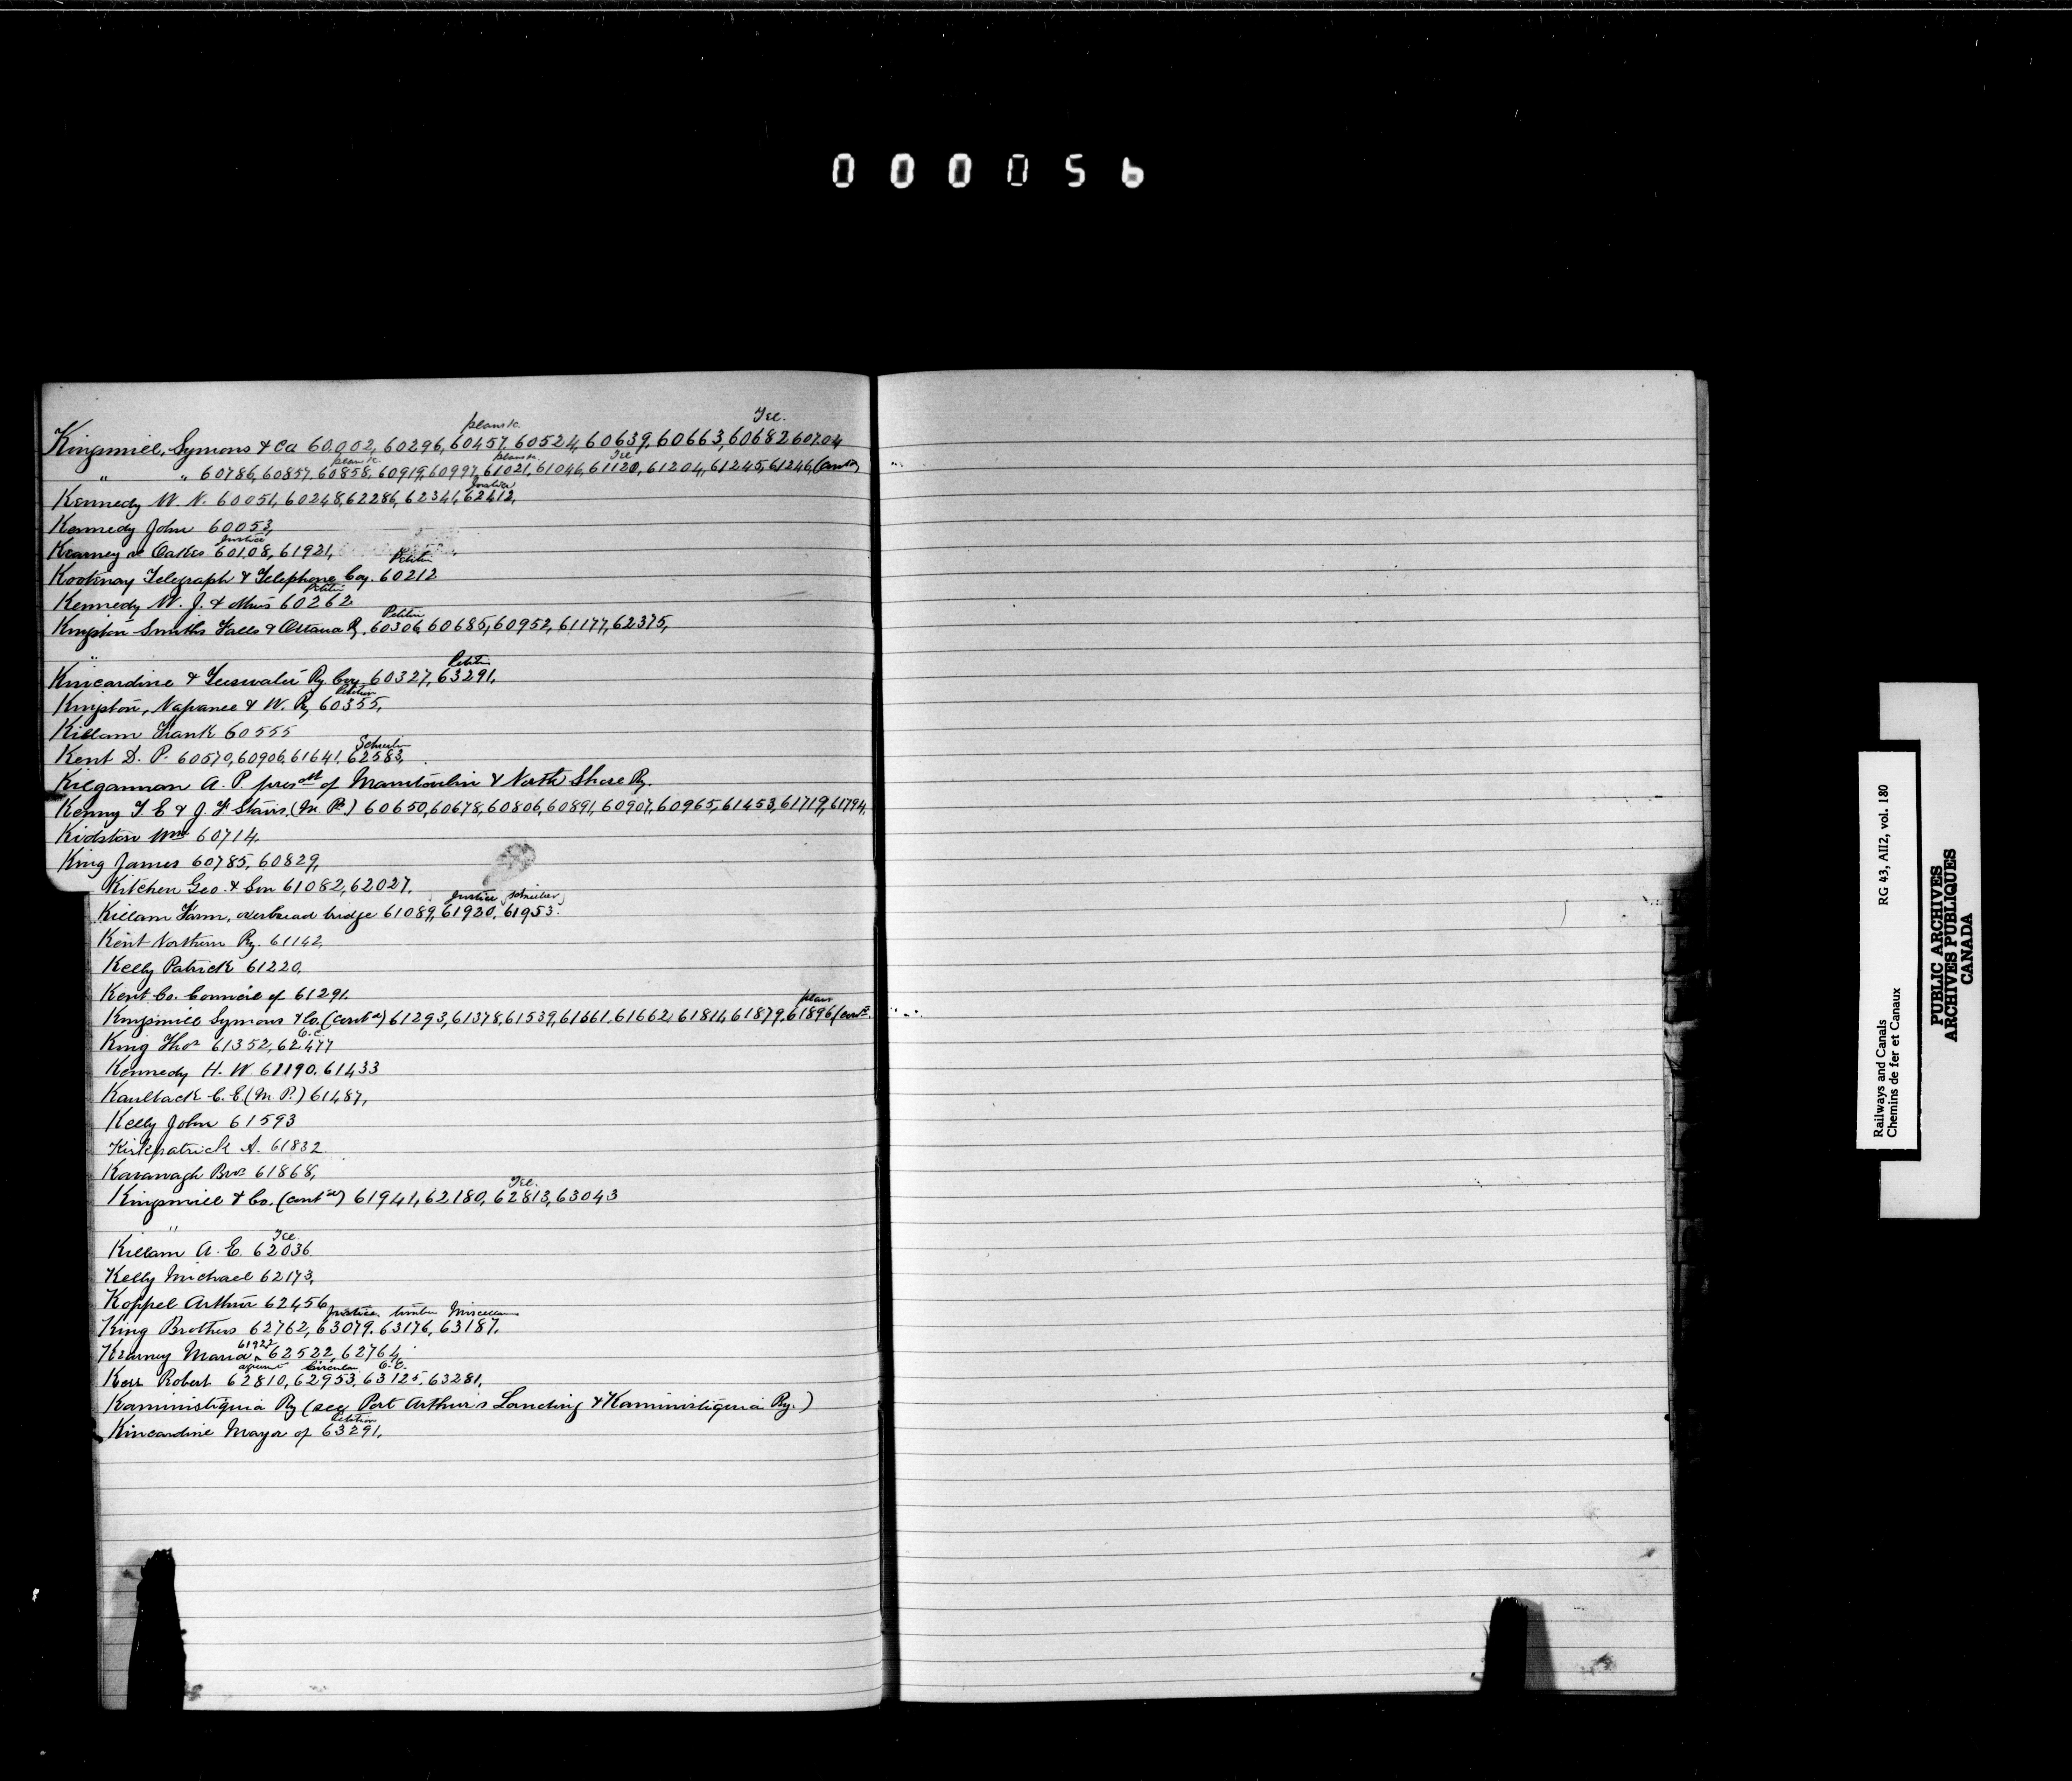 000056
plans &c. Tel.
Kingsmill, Symons & Co 60002, 60296, 60457, 60524, 60639, 60663, 60682 60704
plans &c. plans &c. Tel
" " 60786, 60857, 60858, 60919, 60997, 61021, 61046, 61120, 61204, 61245, 61246, (contd)
Justice
Kennedy W. N. 60051, 60248, 62286, 62341, 62412,
Kennedy John 60053,
Justice
Kearney v Oakes 60108, 61921,
Petitn
Kootenay Telegraph & Telephone Coy. 60212
Petitn
Kennedy W. J. & others 60262
Petitn
Kingston Smiths Falls & Ottawa Ry. 60306, 60685, 60952, 61177, 62375,
"
Petitn
Kincardine & Teeswater Ry. Coy 60327, 63291,
Petition
Kingston, Napanee & W. Ry 60355,
Killam Frank 60555
Schreiber
Kent D. P. 60570, 60906, 61641, 62583,
Kilgannan A. P. presdt of Manitoulin & North Shore Ry.
Kenny T. E & J. F Stairs, (M. Ps) 60650, 60678, 60806, 60891, 60907, 60965, 61453, 61719, 61794,
Kidston Wm 60714.
King James 60785, 60829,
Kitchen Geo. & Son 61082, 62027.
Justice Schreiber
Killam Farm, overhead bridge 61089, 61920, 61953.
Kent Northern Ry. 61142,
Kelly Patrick 61220,
Kent Co. Council of 61291.
plans
Kingsmill Symons & Co. (contd) 61293, 61378, 61539, 61661, 61662, 61814, 61879, 61896 (contd.
C.E.
King Thos 61352, 62477
Kennedy H. W. 61190, 61433
Kaulback C. E (M. P.) 61487,
Kelly John 61593
Kirkpatrick A. 61832
Kavanagh Bros 61868,
Tel.
Kingsmill & Co. (contd) 61941, 62180, 62813, 63043
"
Tel
Killam A. E. 62036
Kelly Michael 62173,
Koppel Arthur 62456
Justice, timber Miscellan
King Brothers 62762, 63079, 63176, 63187.
61922
Kearney Maria ^ 62522, 62764,
agreemt Circular C.E.
Kerr Robert 62810, 62953, 63125, 63281,
Kaministiquia Ry (see Port Arthur's Landing & Kaministiquia Ry.)
Petition
Kincardine Mayor of 63291,
Railways and Canals RG 43, AII2, vol. 180
Chemins de fer et Canaux
PUBLIC ARCHIVES
ARCHIVES PUBLIQUES
CANADA